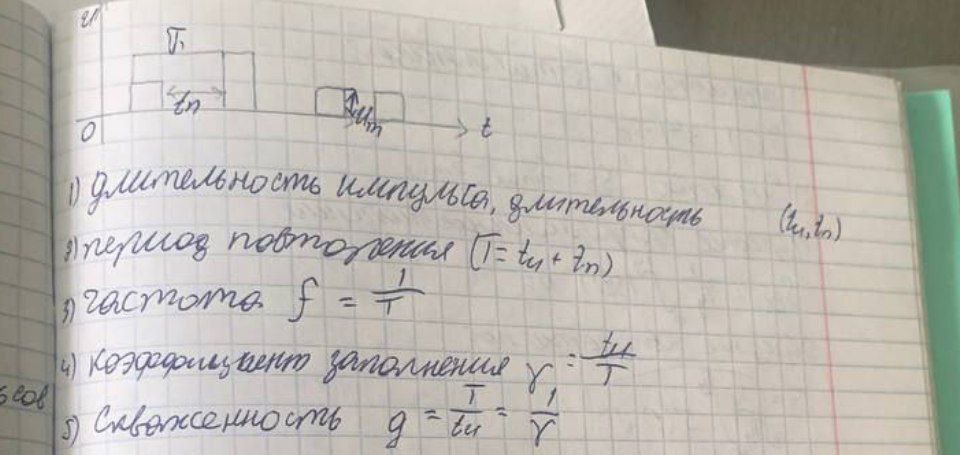 T
tп
Um
0
t
1) длительность импульса, длительность (tи, tп)
2) период повторения (T = tи + tп)
3) частота f = 1/T
4) коэффициент заполнения γ = tи/T
5) Скваженность g = T/tи = 1/γ